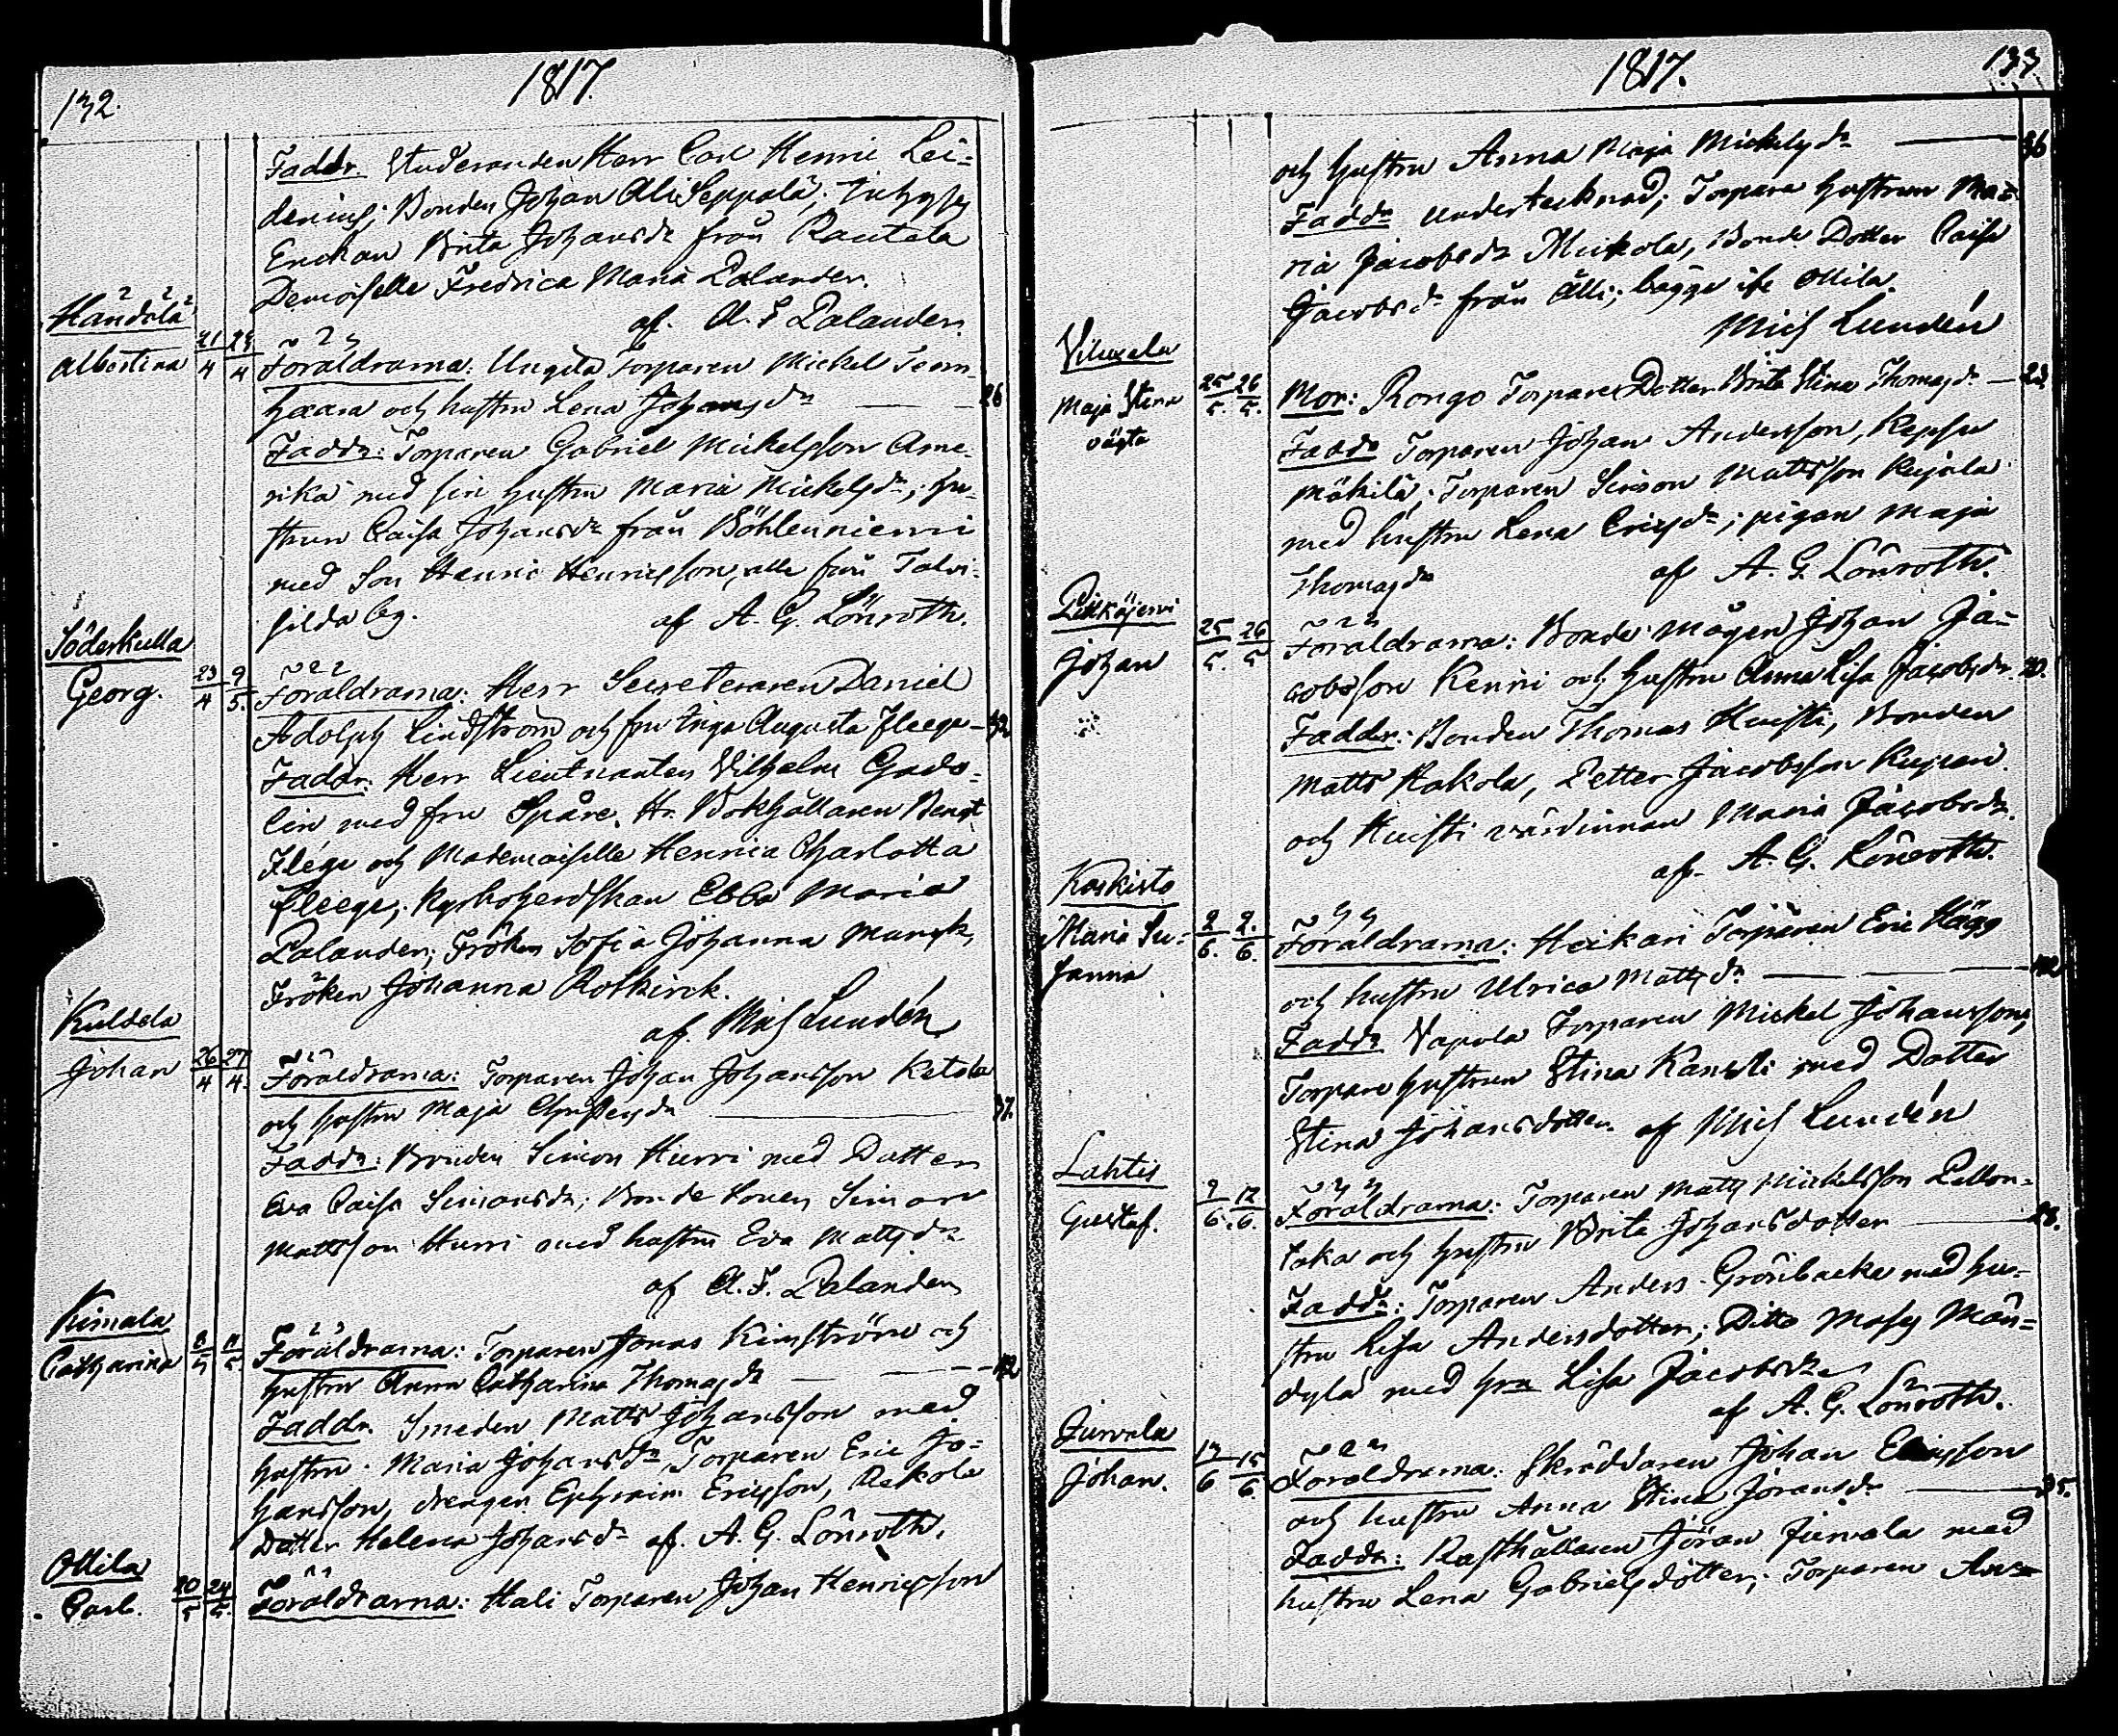 132.
1817.
Faddr. Studeranden Herr Carl Henric Lei=
denius; Bonden Johan Ali Seppälä; Inhyses
Enckan Brita Johansdr från Rautala
Demoiselle Fredrica Maria Palander.
af. A. F Palander.
Händälä
Albertina 21/4 24/4 Föräldrarna: Ungila Torparen Mickel Tem-
haara och hustru Lena Johansdr — 26
Faddr: Torparen Gabriel Mickelsson Ame-
rika med sin hustru Maria Mickelsdr; hu-
strun Caisa Johansdr från Böhlenniemi
med Son Henric Henricsson, alle från Talvi-
silda by. af A. G. Lönroth.
Söderkulla
Georg. 23/4 9/5. Föräldrarna: Herr Secreteraren Daniel
Adolph Lindström och fru Inga Augusta Fleege — 32
Faddr. Herr Lieutnanten Vilhelm Gado-
lin med fru Spåre, Hr. Bokhållaren Bengt
Flege och Mademoiselle Henrica Charlotta
Fleege; Kyrkoherdskan Ebba Maria
Palander; Fröken Sofia Johanna Munck,
Fröken Johanna Rotkirck.
af. Mich Lundén
Kuldela
Johan 26/4 27/4. Föräldrarna: Torparen Johan Johansson Ketola
och hustru Maja Christersdr — 37.
Faddr: Bonden Simon Hurri med Dotter
Eva Caisa Simonsdr; Bonde Sonen Simon
Mattsson Hurri med hustru Eva Mattsdr
af A. F. Palander
Kimala
Catharina 8/5 11/5. Föräldrarna: Torparen Jonas Kimström och
hustru Anna Catharina Thomasdr — 42
Faddr. Smeden Matts Johansson med
hustru Maria Johansdr, Torparen Eric Jo=
hansson, drengen Ephraim Ericsson, Rekola
Dotter Helena Johansdr af. A. G. Lönroth.
Ollila
Carl. 20/5 24/5. Föräldrarna: Hali Torparen Johan Henricsson
1817.
133.
och hustru Anna Maja Mickelsdr — 36
Faddr undertecknad; Torpare hustrun Ma-
ria Jacobsdr Mickola, Bonde Dotter Caisa
Jacobsdr från Älli; bägge ifr Ollila.
Mich Lundén
Viluxela
Maja Stina 25/5. 26/5. Mor: Rongo Torpare Dotter Brita Stina Thomasdr — 23.
oägta Faddr Torparen Johan Andersson,
Mäkilä; Torparen Simon Mattsson Kujala
med hustru Lena Ericsdr; pigan Maja
Thomasdr af A. G. Lönroth.
Pitkäjervi
Johan 25/5. 26/5 Föräldrarna: Bonde Mågen Johan Ja-
cobsson Kenni och hustru Anna Lisa Jacobsdr. 20.
Faddr: Bonden Thomas Huisti, Bonden
Matts Kakola, Petter Jacobsson
och Huisti värdinnan Maria Jacobsdr.
af. A. G. Lönroth.
Koskisto
Maria Su- 2/6. 2/6. Föräldrarna: Heikari Torparen Eric Hägg
sanna och hustru Ulrica Mattsdr —
Faddr Vapola Torparen Mickel Johansson,
Torpare hustrun Stina Kansti med Dotter
Stina Johansdotter. af Mich Lundén
Lahtis
Gustaf. 9/6. 12/6. Föräldrarna: Torparen Matts Mickelsson Pellon-
taka och hustru Brita Johansdotter — 28.
Faddr: Torparen Anders Grönbacka med hu-
stru Lisa Andersdotter; Ditto Moses Män-
dylä med hru Lisa Jacobsdr
af A. G. Lönroth.
Jurvala
Johan. 13/6 15/6. Föräldrarna: Skräddaren Johan Ericsson
och hustru Anna Stina Jöransdr — 35.
Faddr: Rusthållaren Jöran Jurvala med
hustru Lena Gabrielsdotter; Torparen An=